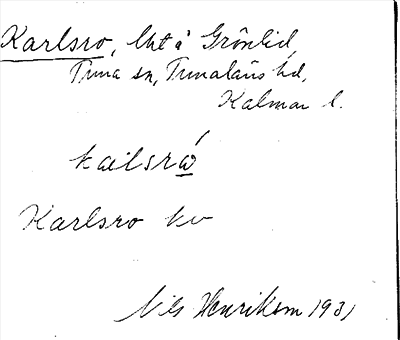 Karlsro, lht å Grönlid,
Tuna sn, Tunaläns hd,
Kalmar l.
kailsrώ
Karlsro kv
Nils Henrikson 1931